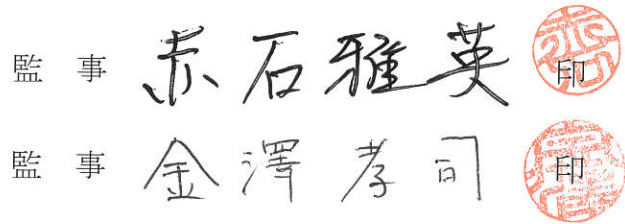 監 事 赤 石 雅 英 印
監 事 金 澤 孝 司 印